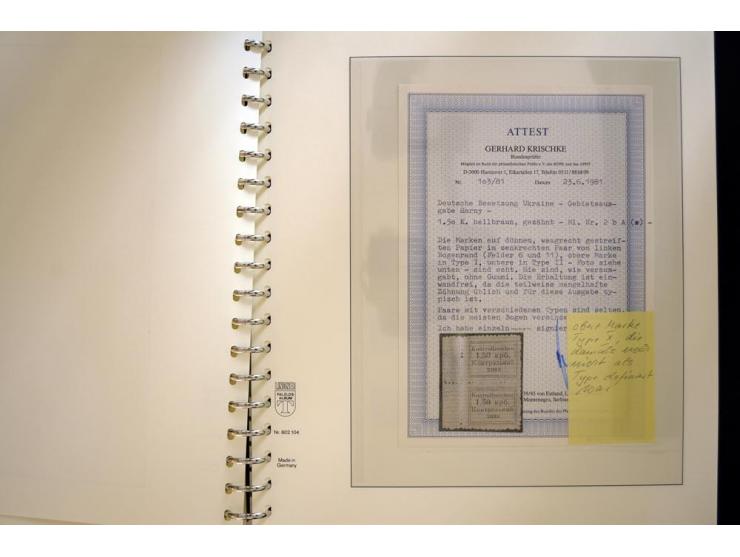 ATTEST
GERHARD KRISCHKE
Bundesprüfer
D-3000 Hannover 1,
Nr. 103/81 Datum 23.6.1981
Deutsche Besetzung Ukraine - Gebietsaus-
gabe Harny -
1,50 K. hellbraun, gezähnt - Mi. Nr. 2 b A (*) -
Die Marken auf dünnem, waagrecht gestreif-
ten Papier in senkrechten Paar von linken
Bogenrand (Felder 6 und 11), obere Marke
in Type I, untere in Type II - Foto siehe
unten - sind echt. Sie sind, wie veraus-
gabt, ohne Gummi. Die Erhaltung ist ein-
wandfrei, da die teilweise mangelhafte
Zähnung üblich und für diese Ausgabe ty-
pisch ist.
Paare mit verschiedenen Typen sind selten,
da die meisten Bogen
Ich habe einzeln signier
obere Marke
Type X, die
damals noch
nicht als
Type definiert
war
Kontrollzeichen
1,50 крб.
Kontrollzeichen
1,50 крб.
von Estland,
Montenegro, Serbien
PALZLOS
ALBUM
T
Nr. 802 104
Made in
Germany